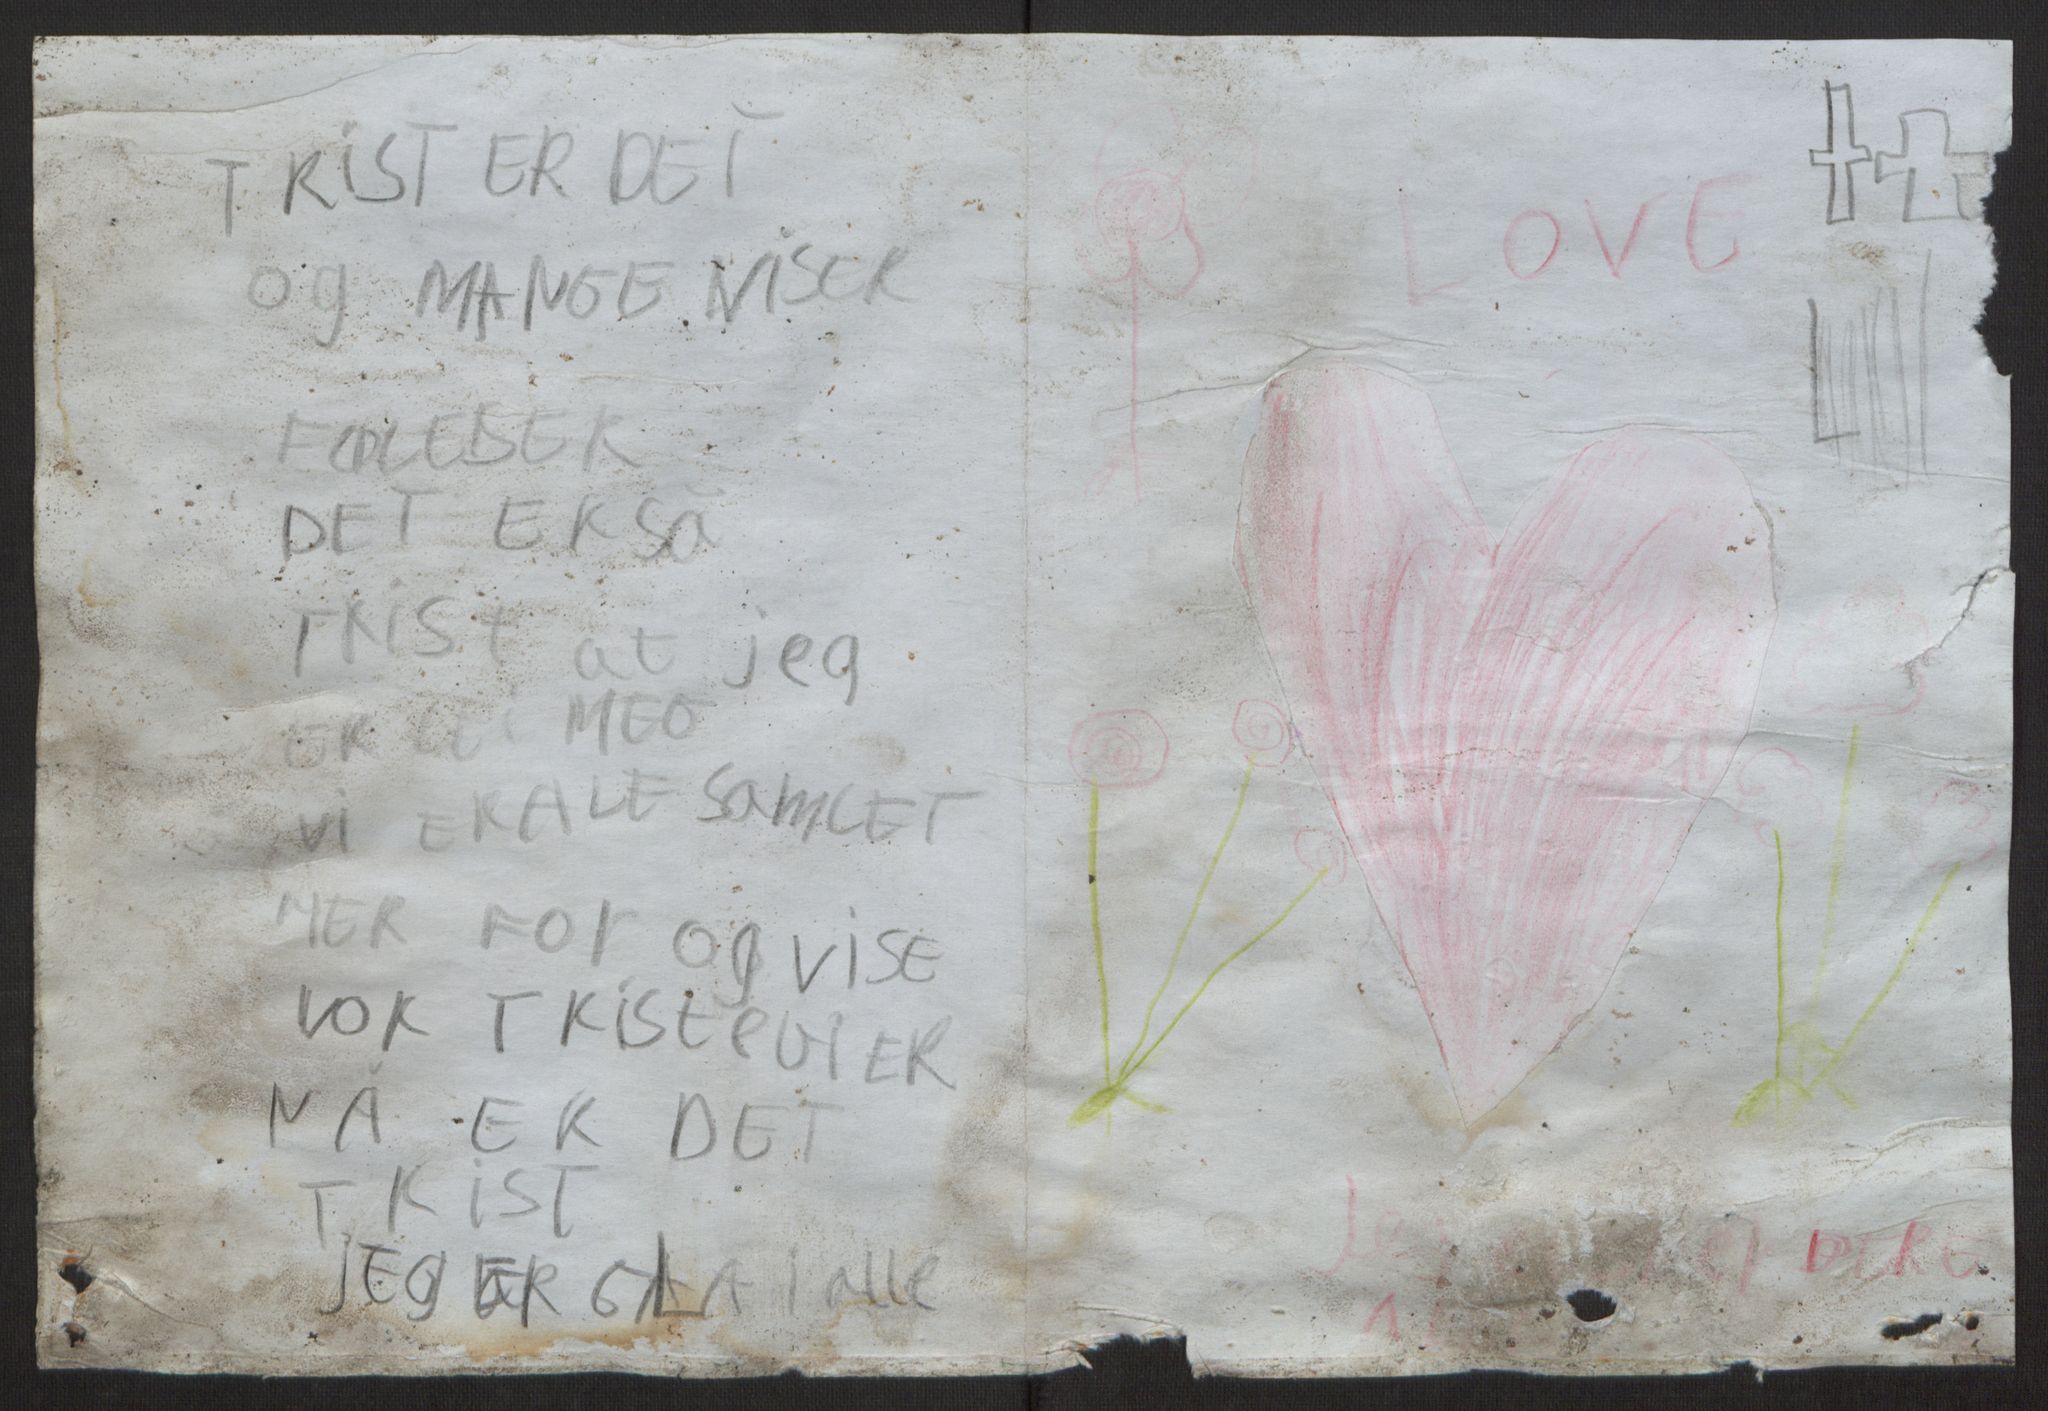 TRiST ER DET
og MANGE ViSER
FØLELSER
DET ER SÅ
TRiSt at jeg
ER LEi MEG
Vi ER ALE SAMLET
MER FOr og ViSE
VOR TRiStE Vi ER
NÅ ER DET
TRiST
jEg ER GLA I Alle
LOVE
DERE